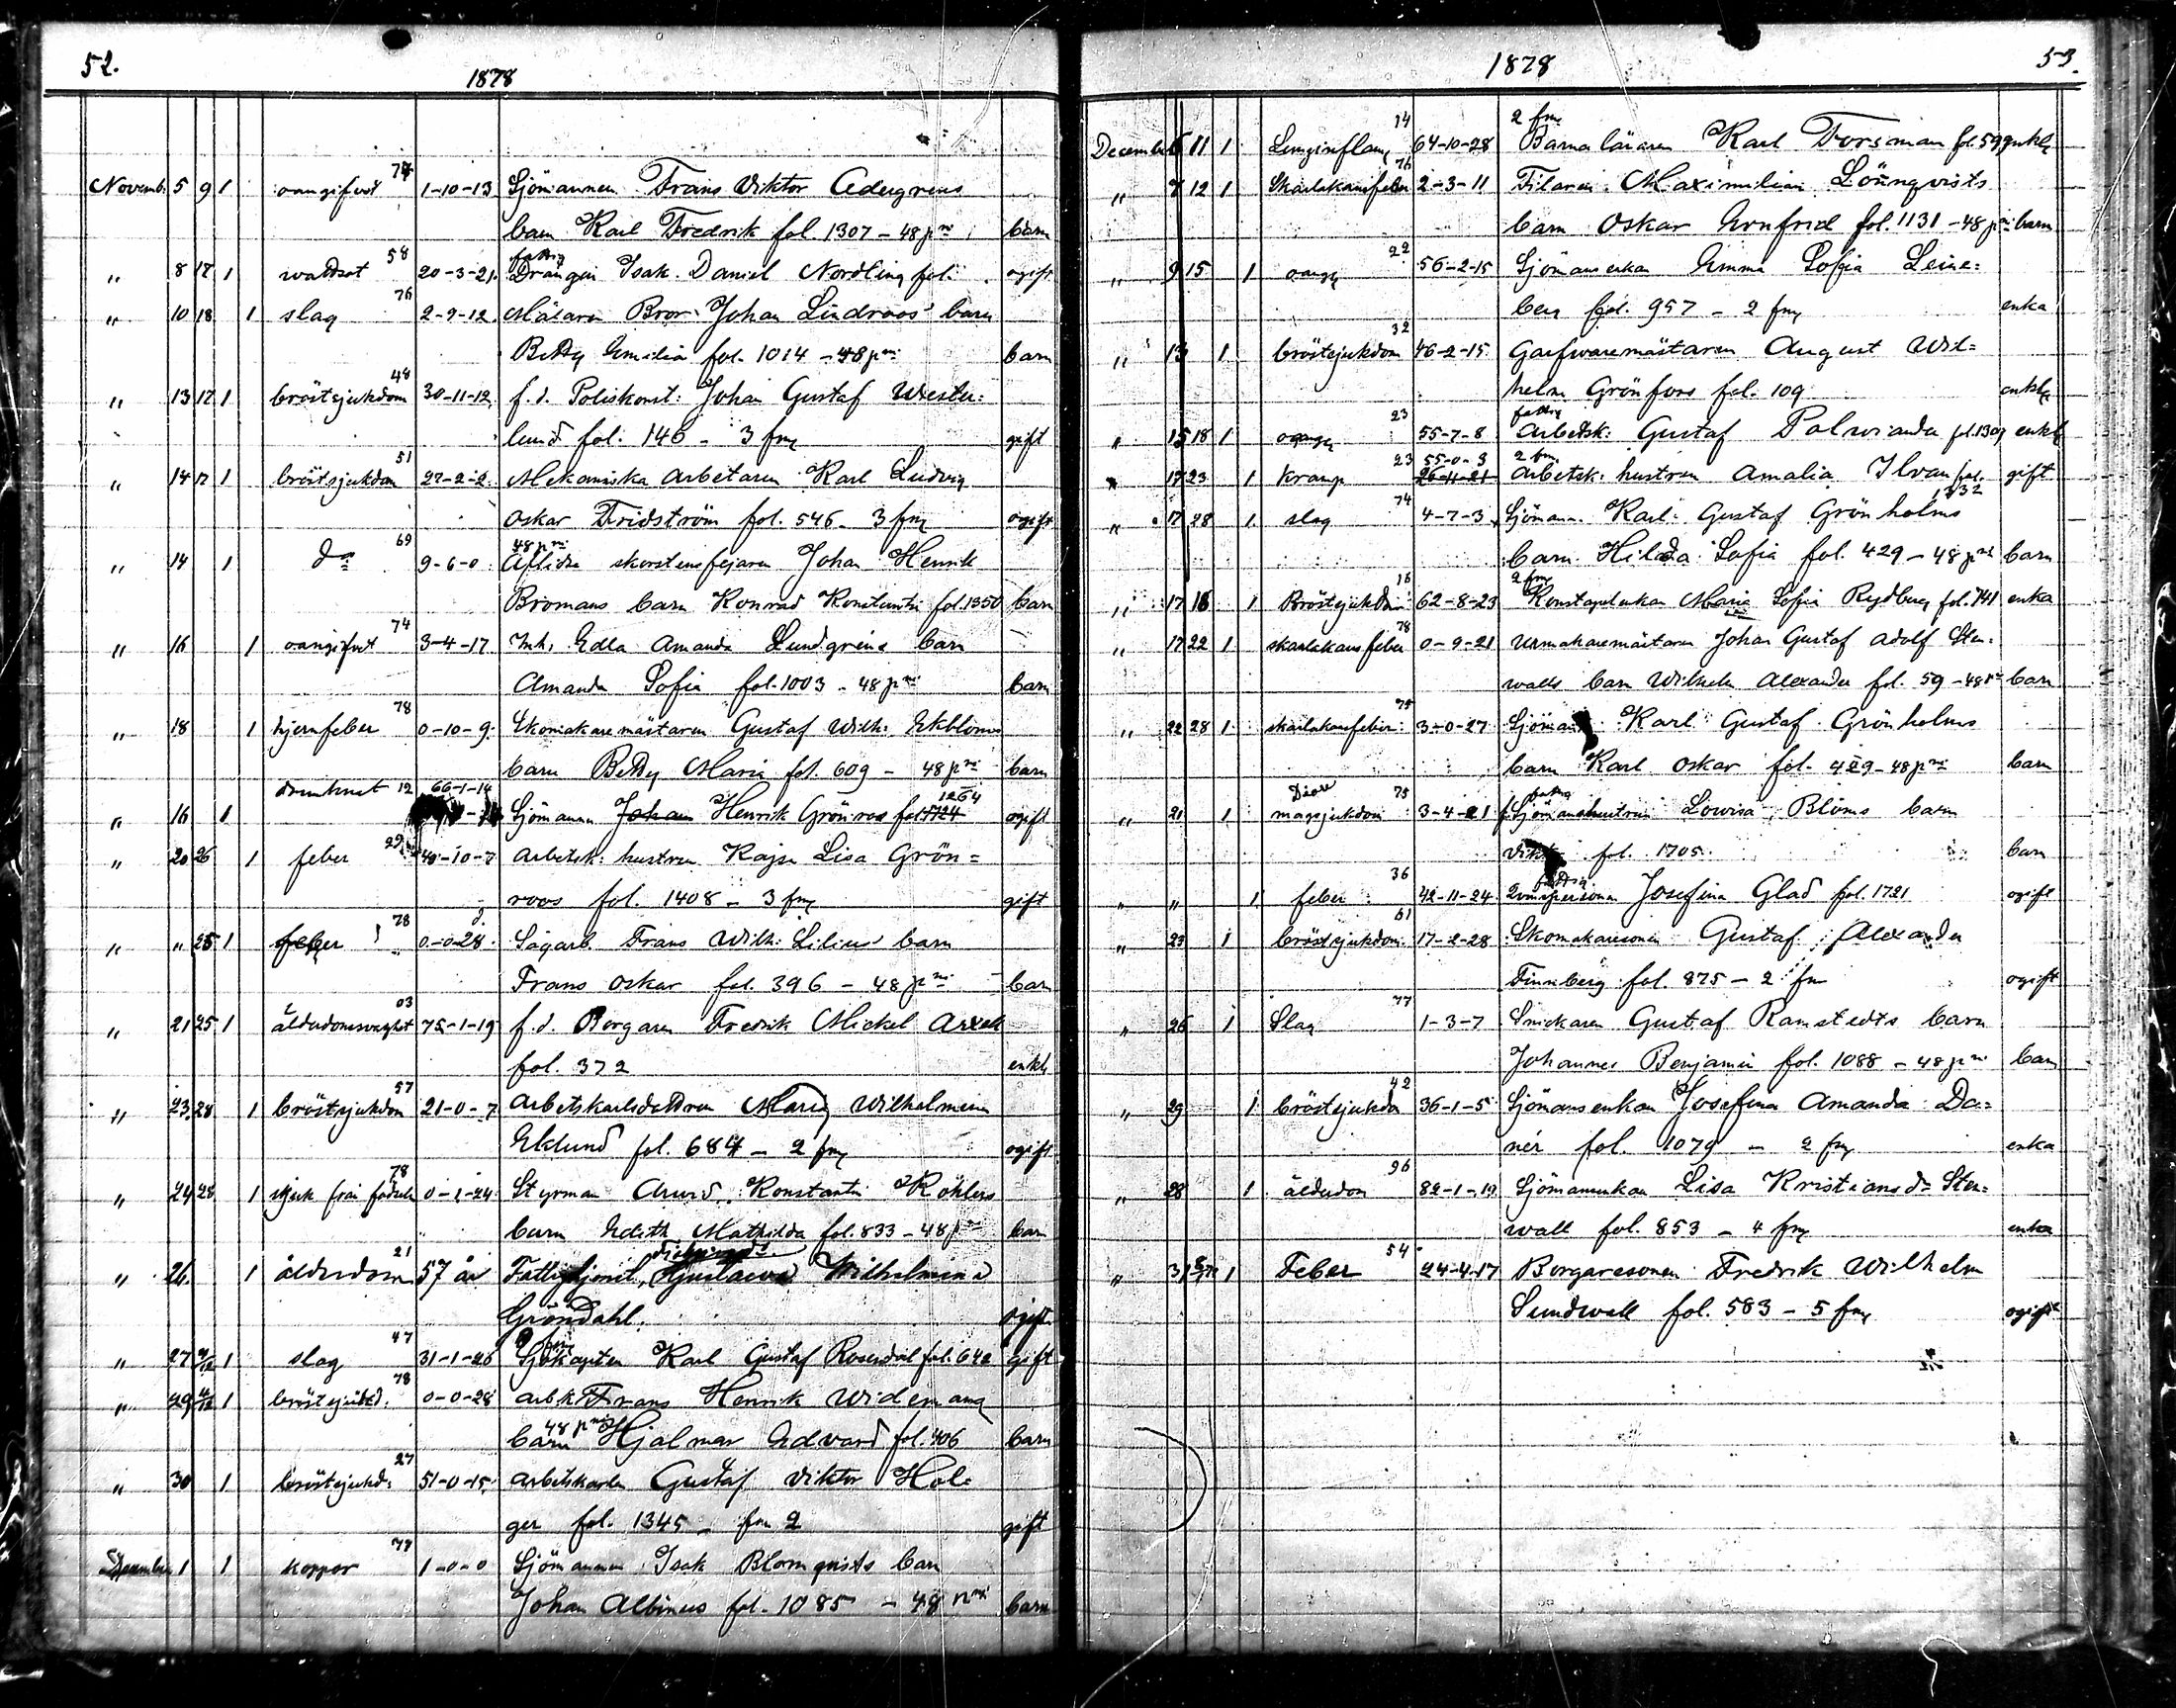 52.
1878
Novemb. 5 9 1 oangifvet 77 1-10-13 Sjömannen Frans Viktor Adergrens
barn Karl Fredrik fol 1307 – 48 pni barn
58 fattig
" 8 17 1 wattsot 20-3-21. Drängen Isak Daniel Nordling fol. ogift
" 10 18 1 slag 76 2-9-12. Målaren Bror Johan Lindroos' barn
Betty Emilia fol. 1014 – 48 pni barn
" 13 17 1 bröstsjukdom 48 30-11-12 f. d. Poliskonst: Johan Gustaf Wester=
lund fol. 146 – 3 fmk gift
" 14 17 1 bröstsjukdom 51 27-2-2. Mekaniska arbetaren Karl Ludvig
Oskar Fridström fol. 546 – 3 fmk ogift
69 48 pni
" 14 1 do 9-6-0 Aflidne skorstensfejaren Johan Henrik
Bromans barn Konrad Konstantin fol. 1350 barn
" 16 1 oangifvet 74 3-4-17 Inh. Edla Amanda Lundgrens barn
Amanda Sofia fol. 1003 – 48 pni barn
" 18 1 hjernfeber 78 0-10-9. Skomakaremästaren Gustaf Wilh: Ekbloms
barn Betty Maria fol. 609 – 48 pni barn
drunknat 12 66-1-14 1264
" 16 1 Sjömannen Johan Henrik Grönroos fol. 1724 ogift
" 20 26 1 feber 29 48-10-7 Arbetsk: hustrun Kajsa Lisa Grön=
roos fol. 1408 – 3 fmk gift
" " 25 1 feber 78 0-0-28. Sågarb. Frans Wilh: Lilius' barn
Frans Oskar fol. 396 – 48 pni barn
" 21 25 1 ålderdomsvaghet 03 75-1-19 f. d. Borgaren Fredrik Mickel
fol. 372 enkl.
" 23 28 1 bröstsjukdom 57 21-0-7 Arbetskarlsdottren Maria Wilhelmina
Eklund fol. 684 – 2 fmk ogift
" 24 28 1 sjuk från födseln 78 0-1-24. Styrman Arvid Konstantin Köhlers
barn Edith Mathilda fol. 833 – 48 pni barn
" 26 1 ålderdom 21 57 år Fattighjonet Gustaava Wilhelmina
Gröndahl. ogift
" 27 1 slag 47 31-1-26 Sjökapten Karl Gustaf Rosendal fol. 642 gift
" 29 1 bröstsjukd. 78 0-0-28 Arbk. Frans Henrik Widemans
48 pni
barn Hjalmar Edvard fol. 406 barn
" 30 1 bröstsjukd: 27 51-0-15. Arbetskarlen Gustaf Viktor Hol=
ger fol. 1345 – fmk 2 gift
December 1 1 koppor 77 1-0-0 Sjömannen Isak Blomqvists barn
Johan Albinus fol. 1085 – 48 pni barn
1878
53.
14 2 fmk
December 6 11 1 Lunginflam 64-10-28 Barnaläraren Karl Forsman fol. 599 enkl.
" 7 12 1 Skarlakansfeber 76 2-3-11 Filaren Maximilian Lönnqvists
barn Oskar Ernfrid fol. 1131 – 48 pni barn
" 9 15 1 oang. 22 56-2-15 Sjömansenkan Emma Sofia Leine=
berg fol. 957 – 2 fmk enka
" 13 1 bröstsjukdom 32 46-2-15. Garfvaremästaren August Wil=
helm Grönfors fol. 109 enkl.
23 fattig
" 15 18 1 oang. 55-7-8 Arbetsk: Gustaf Palwiander fol. 1309 enkl.
23 55-0-3 2 fm.
" 17 23 1 kramp 26-11-21 Arbetsk: hustrun Amalia Ilvan fol. gift
1232
" 17 28 1 slag 74 4-7-3 Sjöman. Karl Gustaf Grönholms
barn Hilda Sofia fol. 429 – 48 pni barn
16 2 fmk
" 17 18 1 Bröstsjukdom 62-8-23 Konstapelenkan Maria Sofia Rydberg fol. 741 enka
" 17 22 1 skarlakansfeber 78 0-9-21 Urmakaremästaren Johan Gustaf Adolf Sten=
walls barn Wilhelm Alexander fol. 59 – 48 pni barn
" 22 28 1 skarlakansfeber 75 3-0-27 Sjöman Karl Gustaf Grönholms
barn Karl Oskar fol. 429 – 48 pni barn
75 fattig
" 21 1 magsjukdom 3-4-21 f. Sjömanshustrun Lowisa Bloms barn
Viktor fol. 1705. barn
36 fattig
" " 1 feber 42-11-24 Qvinspersonen Josefina Glad fol. 1721 ogift
" 23 1 bröstsjukdom 61 17-2-28 Skomakaresonen Gustaf Alexander
Finnberg fol. 875 – 2 fm ogift
" 26 1 Slag 77 1-3-7 Snickaren Gustaf Ramstedts barn
Johannes Benjamin fol. 1088 – 48 pni barn
" 29 1 bröstsjukdom 42 36-1-5 Sjömansenkan Josefina Amanda Da=
nér fol. 1079 – 2 fmk enka
" 28 1 ålderdom 96 82-1-19 Sjömansenkan Lisa Kristiansdr Sten=
wall fol. 853 – 4 fmk enka
" 31 1 Feber 54 24-4-17 Borgaresonen Fredrik Wilhelm
Sundwall fol. 583 – 5 fmk ogift